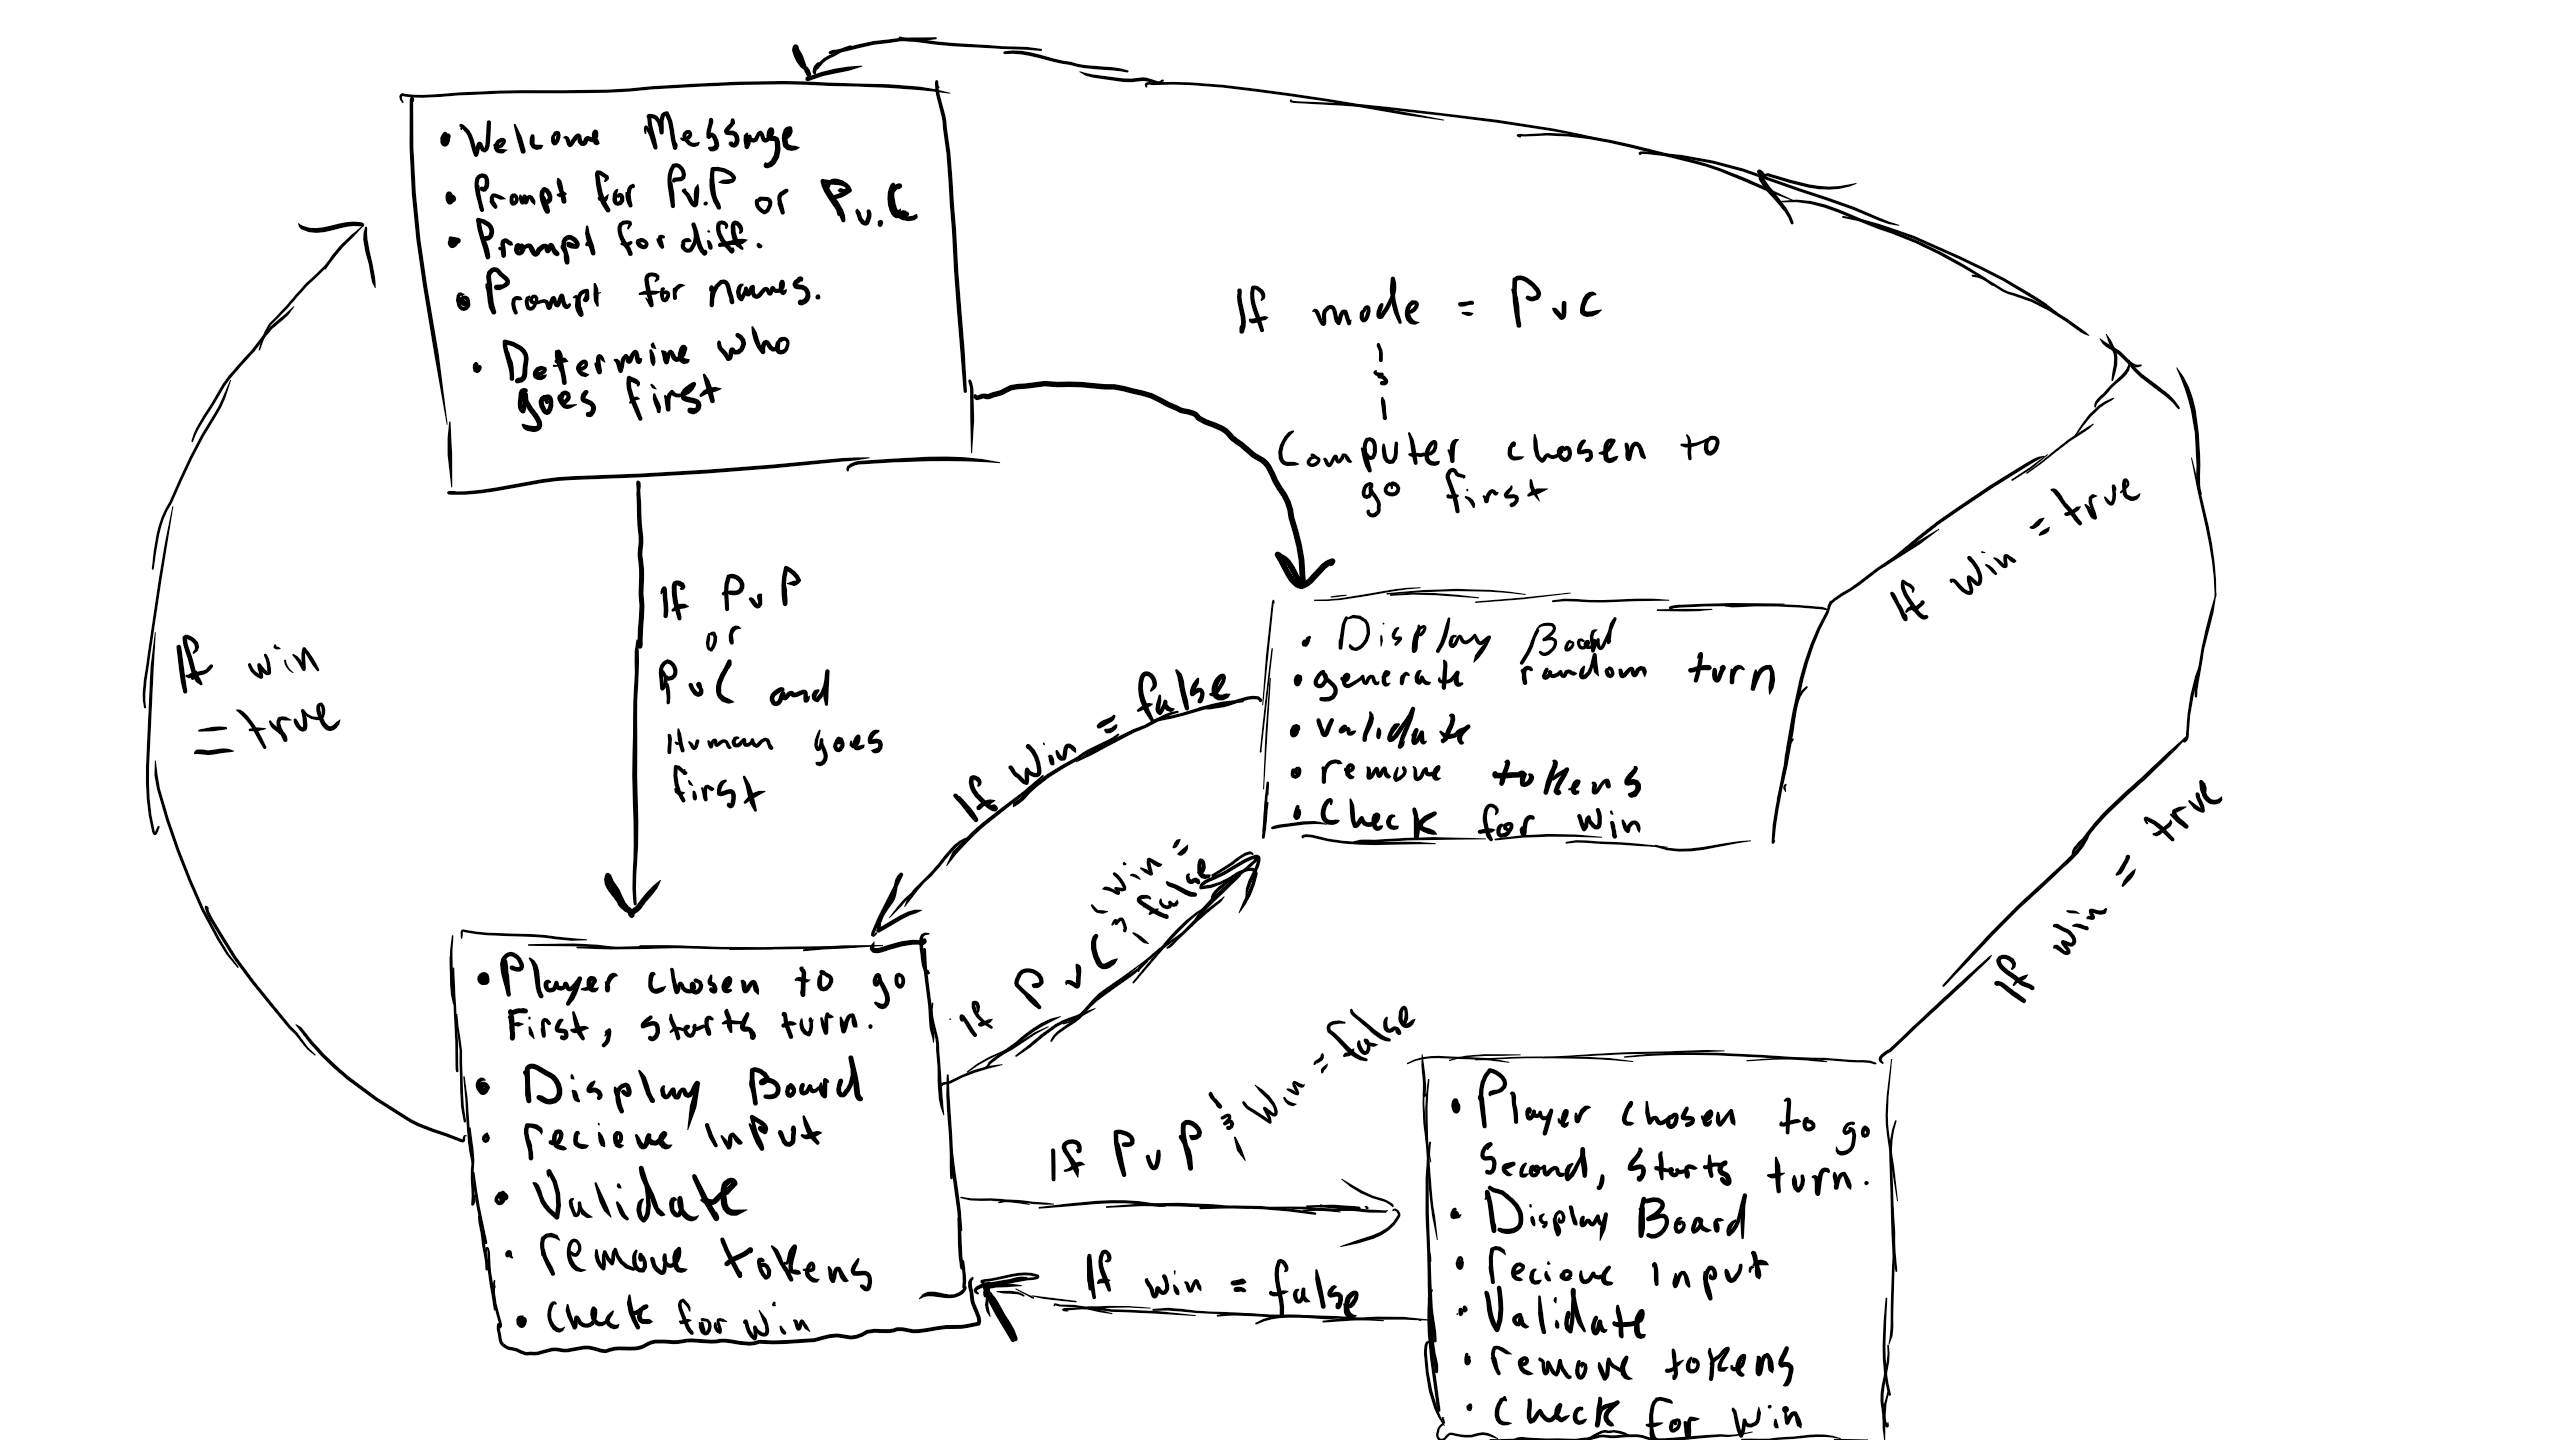 • Welcome Message
• Prompt for Pv.P or Pv.C
• Prompt for diff.
• Prompt for names.
• Determine who
goes first
If mode = PvC
&
Computer chosen to
go first
If win = true
If win
= true
If PvP
or
PvC and
Human goes
first
If win = false
• Display Board
• generate random turn
• validate
• remove tokens
• Check for win
If PvC & win =
false
If win = true
• Player chosen to go
First, starts turn.
• Display Board
• recieve input
• Validate
• remove tokens
• Check for win
If PvP & win = false
If win = false
• Player chosen to go
Second, starts turn.
• Display Board
• recieve input
• Validate
• remove tokens
• Check for win